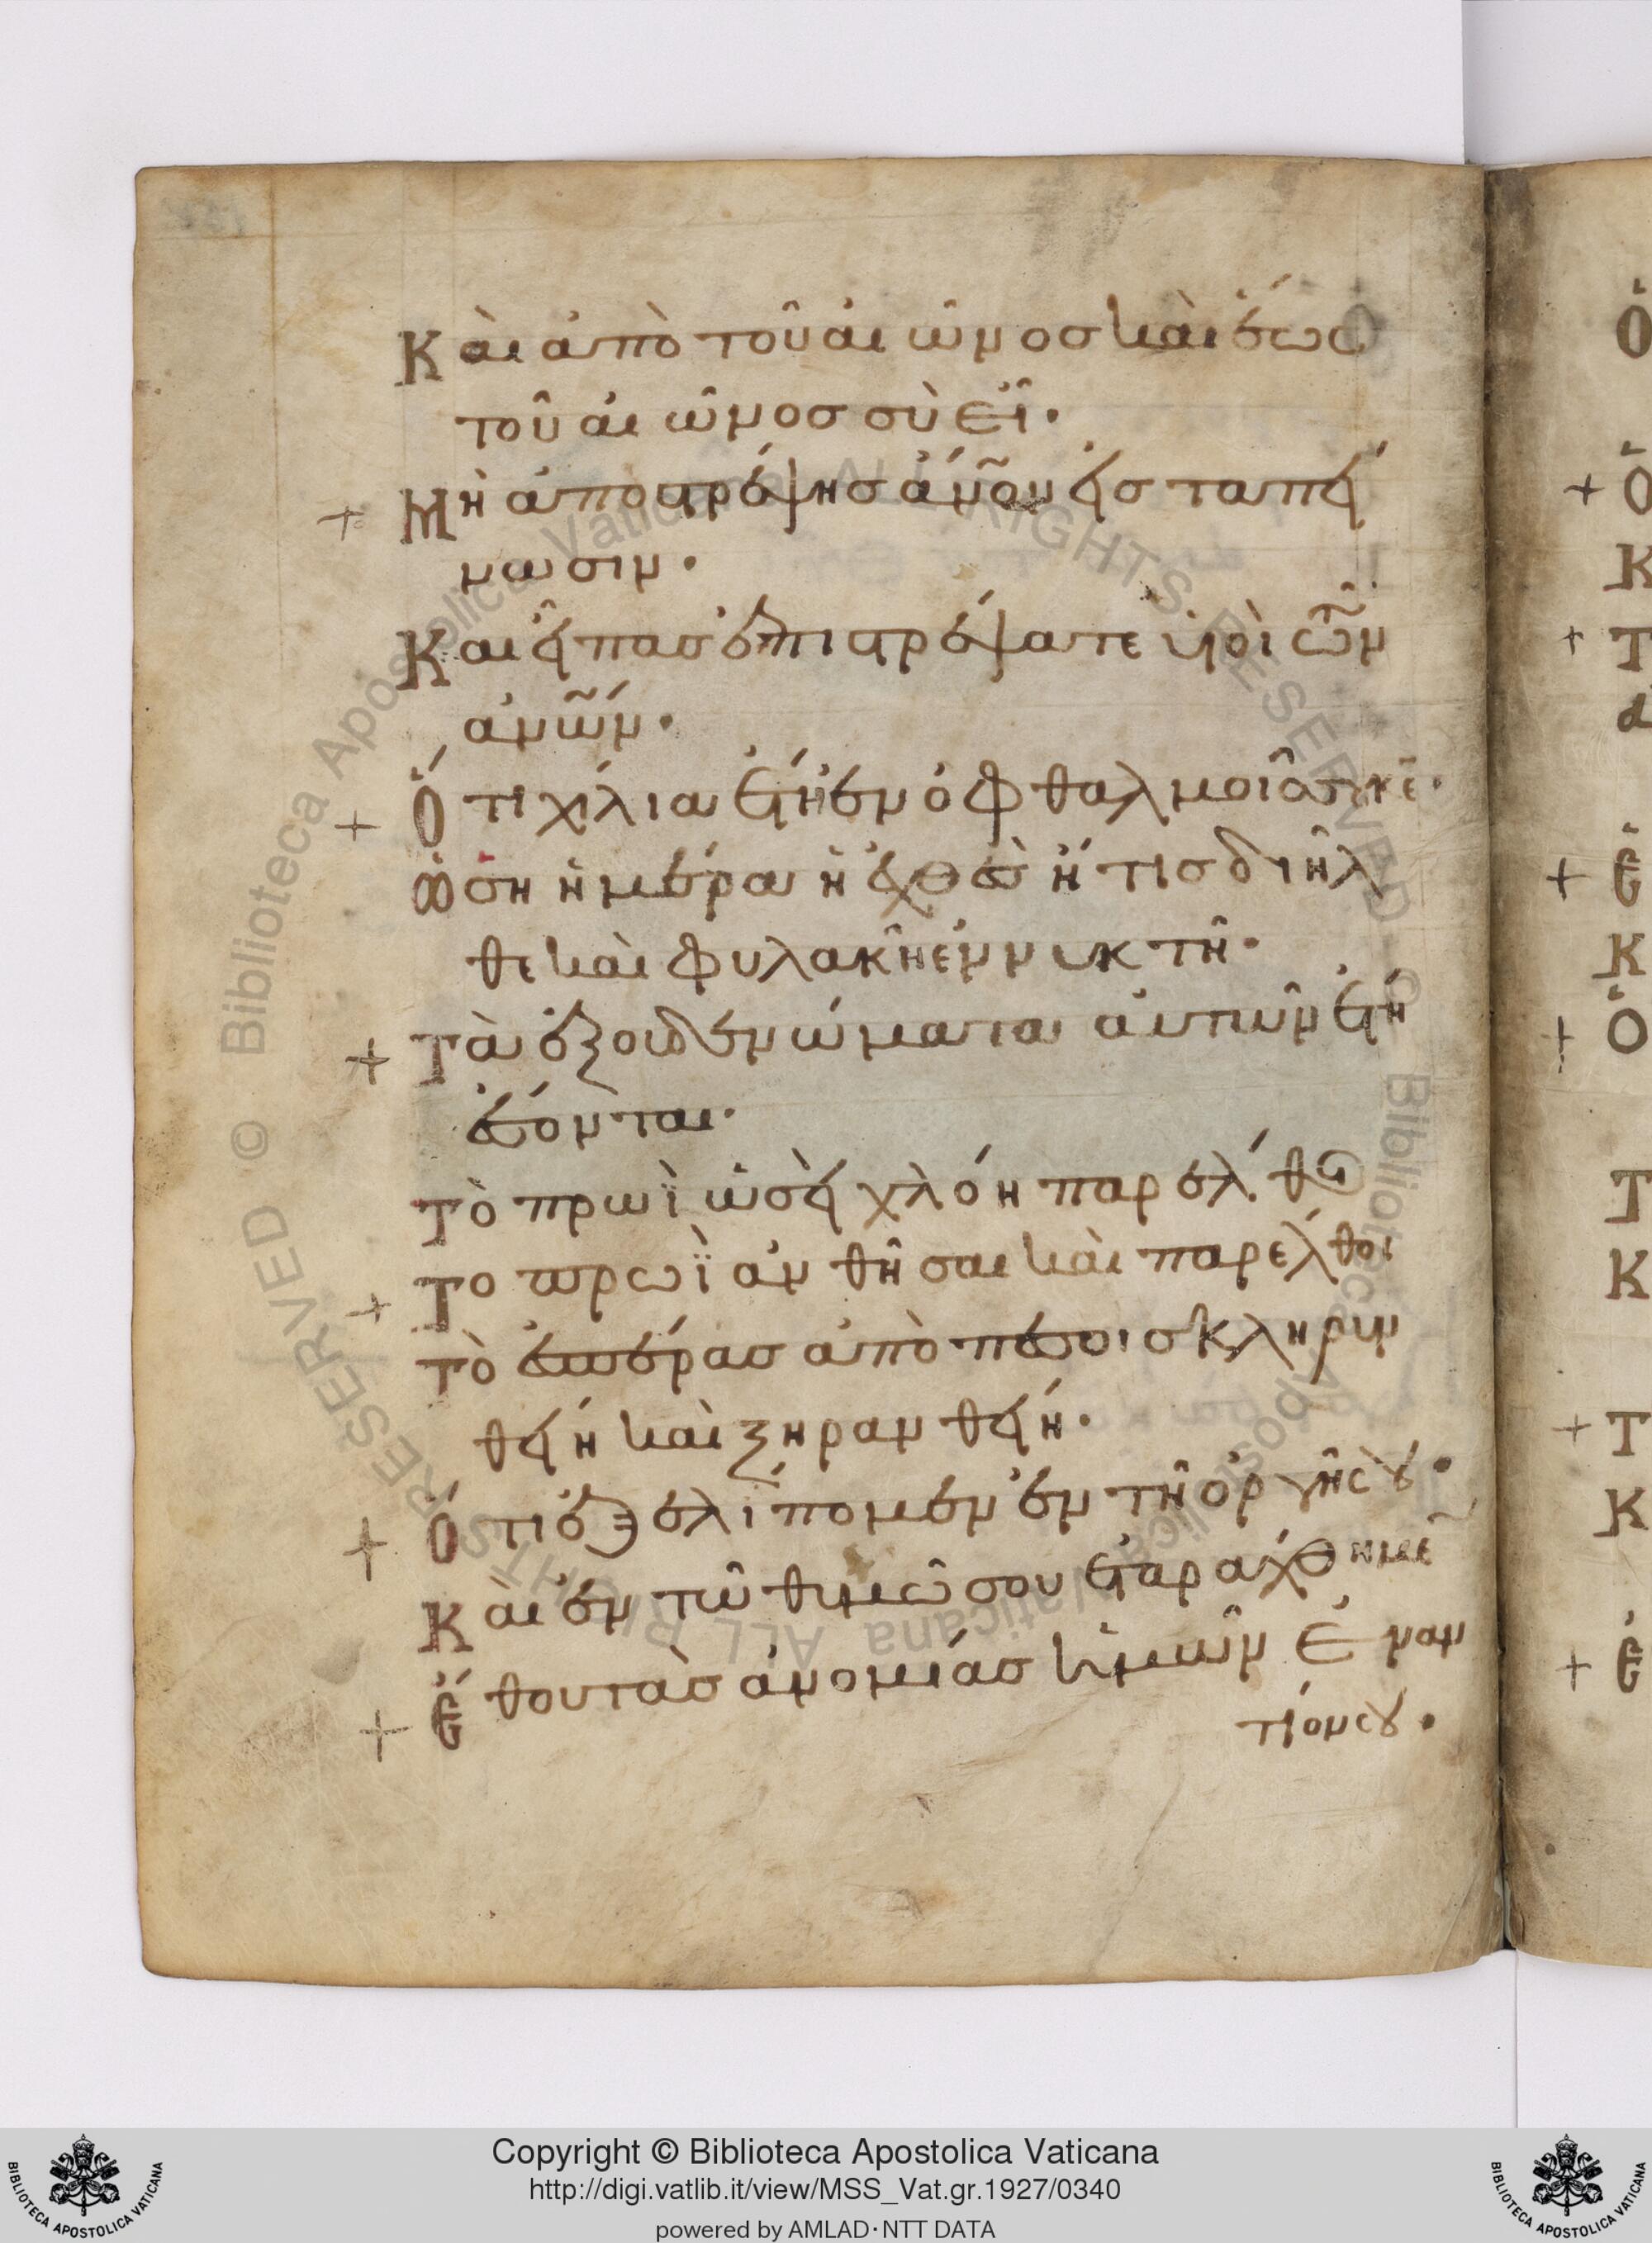 Καὶ ἀπὸ τοῦ αἰῶνοσ καὶ ἕωσ
τοῦ αἰῶνοσ σὺ εἶ.
+ Μὴ ἀποστρέψησ ἄν̅ο̅ν εἰσ ταπεί
νωσιν.
Και εἶπασ ἐπιστρέψατε υἱοὶ τῶν
ἀν̅ῶ̅ν.
+ Ὅτι χίλια ἔτη ἐν ὀφθαλμοῖσ σου κ̅ε̅.
Ὡση ἡμέρα ἡ ἐχθὲσ ἥτισ διῆλ
θε καὶ φυλακῆ ἐν νυκτῆ.
+ Τὰ ἐξουδενώματα αὐτῶν ἔτη
ἔσονται.
Τὸ πρωῒ ὡσεὶ χλόη παρέλθοι
+ Το πρωῒ ἀνθῆσαι καὶ παρέλθοι
Τὸ ἑσπέρασ ἀποπέσοι σκληρυν
θείη καὶ ξηρανθείη.
+ Ὅτι ἐξελίπομεν ἐν τῆ ὀργῆ σου.
Καὶ ἐν τῶ θυμῶ σου ἐταράχθημε̅
+ Ἔθου τὰσ ἀνομίασ ἡμῶν ἐναν
τίον σου.
Ὁ
+ Ὁ
Κ
+ Τ
+ Ἐ
Κ
+ Ὁ
Τ
Κ
+ Τ
Κ
+ Ἐ
© Biblioteca Apostolica Vaticana ALL RIGHTS RESERVED
© Biblioteca Apostolica Vaticana ALL RIGHTS RESERVED
Copyright © Biblioteca Apostolica Vaticana
http://digi.vatlib.it/view/MSS_Vat.gr.1927/0340
powered by AMLAD·NTT DATA
BIBLIOTECA APOSTOLICA VATICANA
BIBLIOTECA APOSTOLICA VATICANA